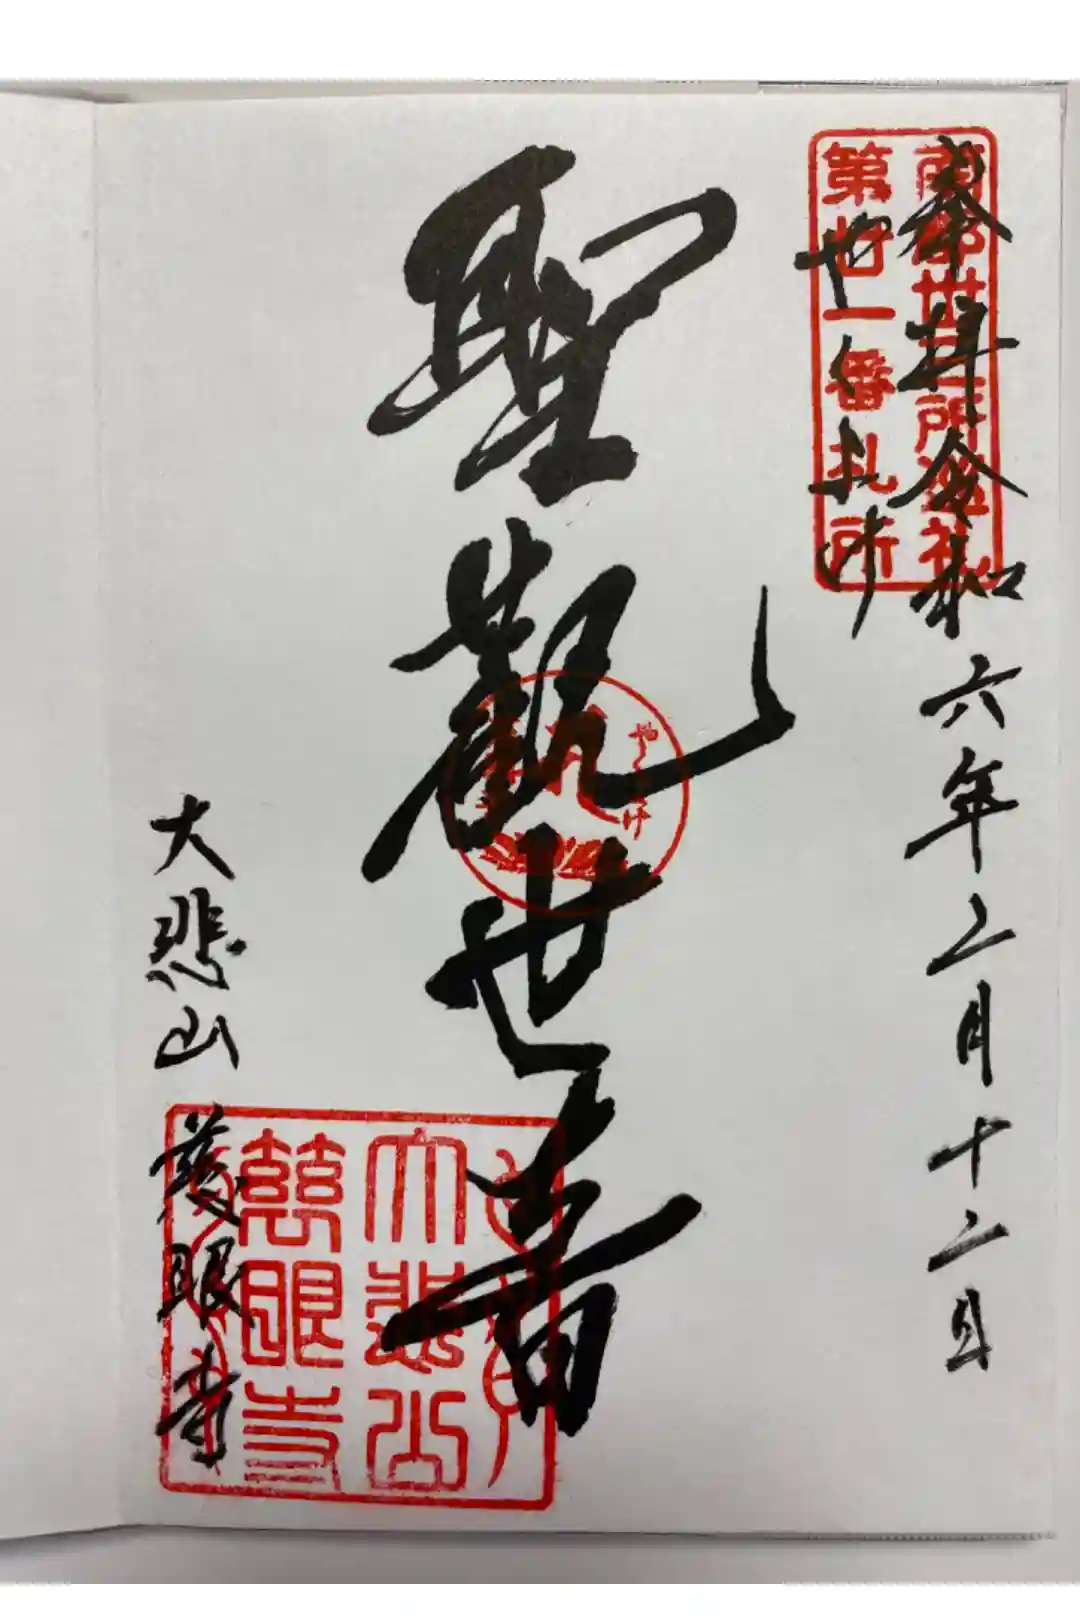 奉拝 令和六年二月十二日
やくよけ
南都卅三所巡礼
第廿一番札所
聖観世音
大悲山 慈眼寺
大悲山
慈眼寺